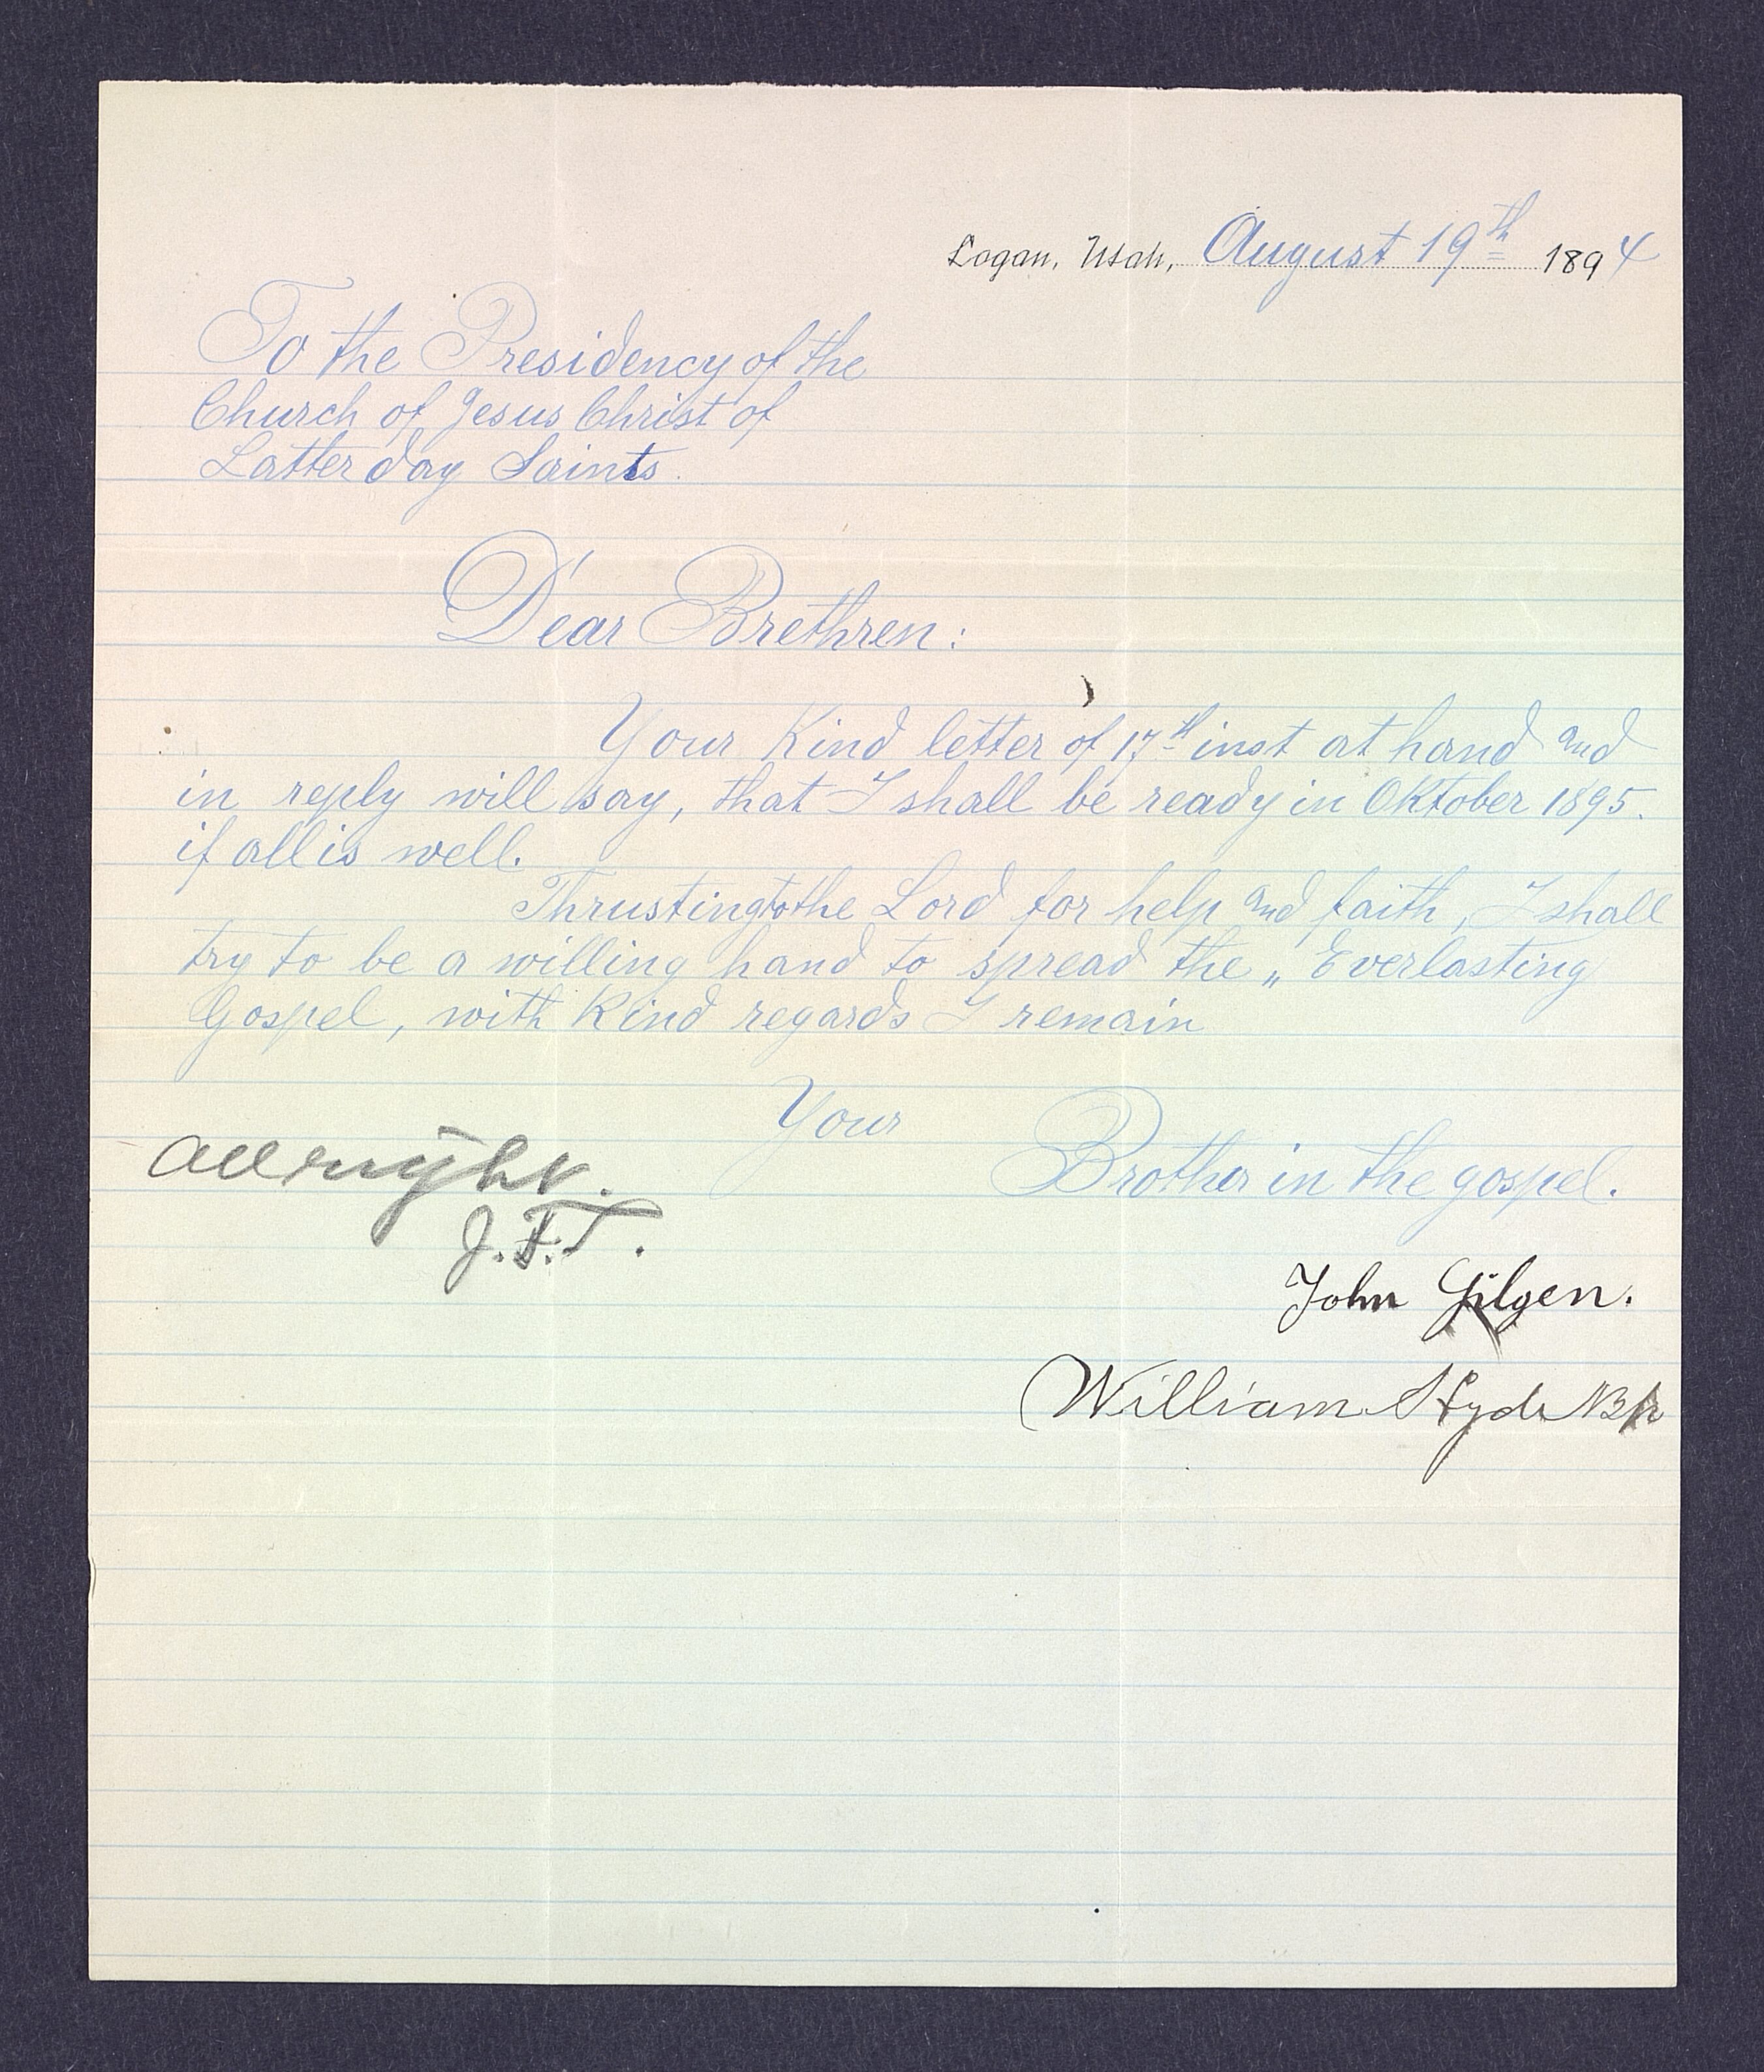 Logan, Utah, August 19th 1894
To the Presidency of the
Church of Jesus Christ of
Latter day Saints.
Dear Brethren:
Your Kind letter of 17th inst at hand and
in reply will say, that I shall be ready in Oktober 1895.
if all is well.
Thrusting to the Lord for help and faith, I shall
try to be a willing hand to spread the „Everlasting
Gospel, with Kind regards I remain
Your
Brother in the gospel.
All right.
J.F.S.
John Gilgen.
William Hyde Bp